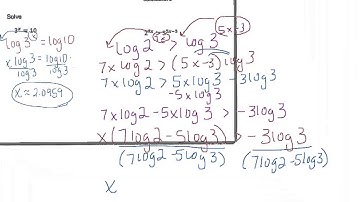 Solve
3ˣ = 10
log3ˣ = log10
x log3 = log10
log3 log3
x ≈ 2.0959
log2⁷ˣ > log3⁵ˣ⁻³
7x log2 > (5x-3) log3
7x log2 > 5x log3 - 3log3
-5x log3
7x log2 - 5x log3 > -3log3
x (7log2 - 5log3) > -3log3
(7log2 - 5log3) (7log2 - 5log3)
x